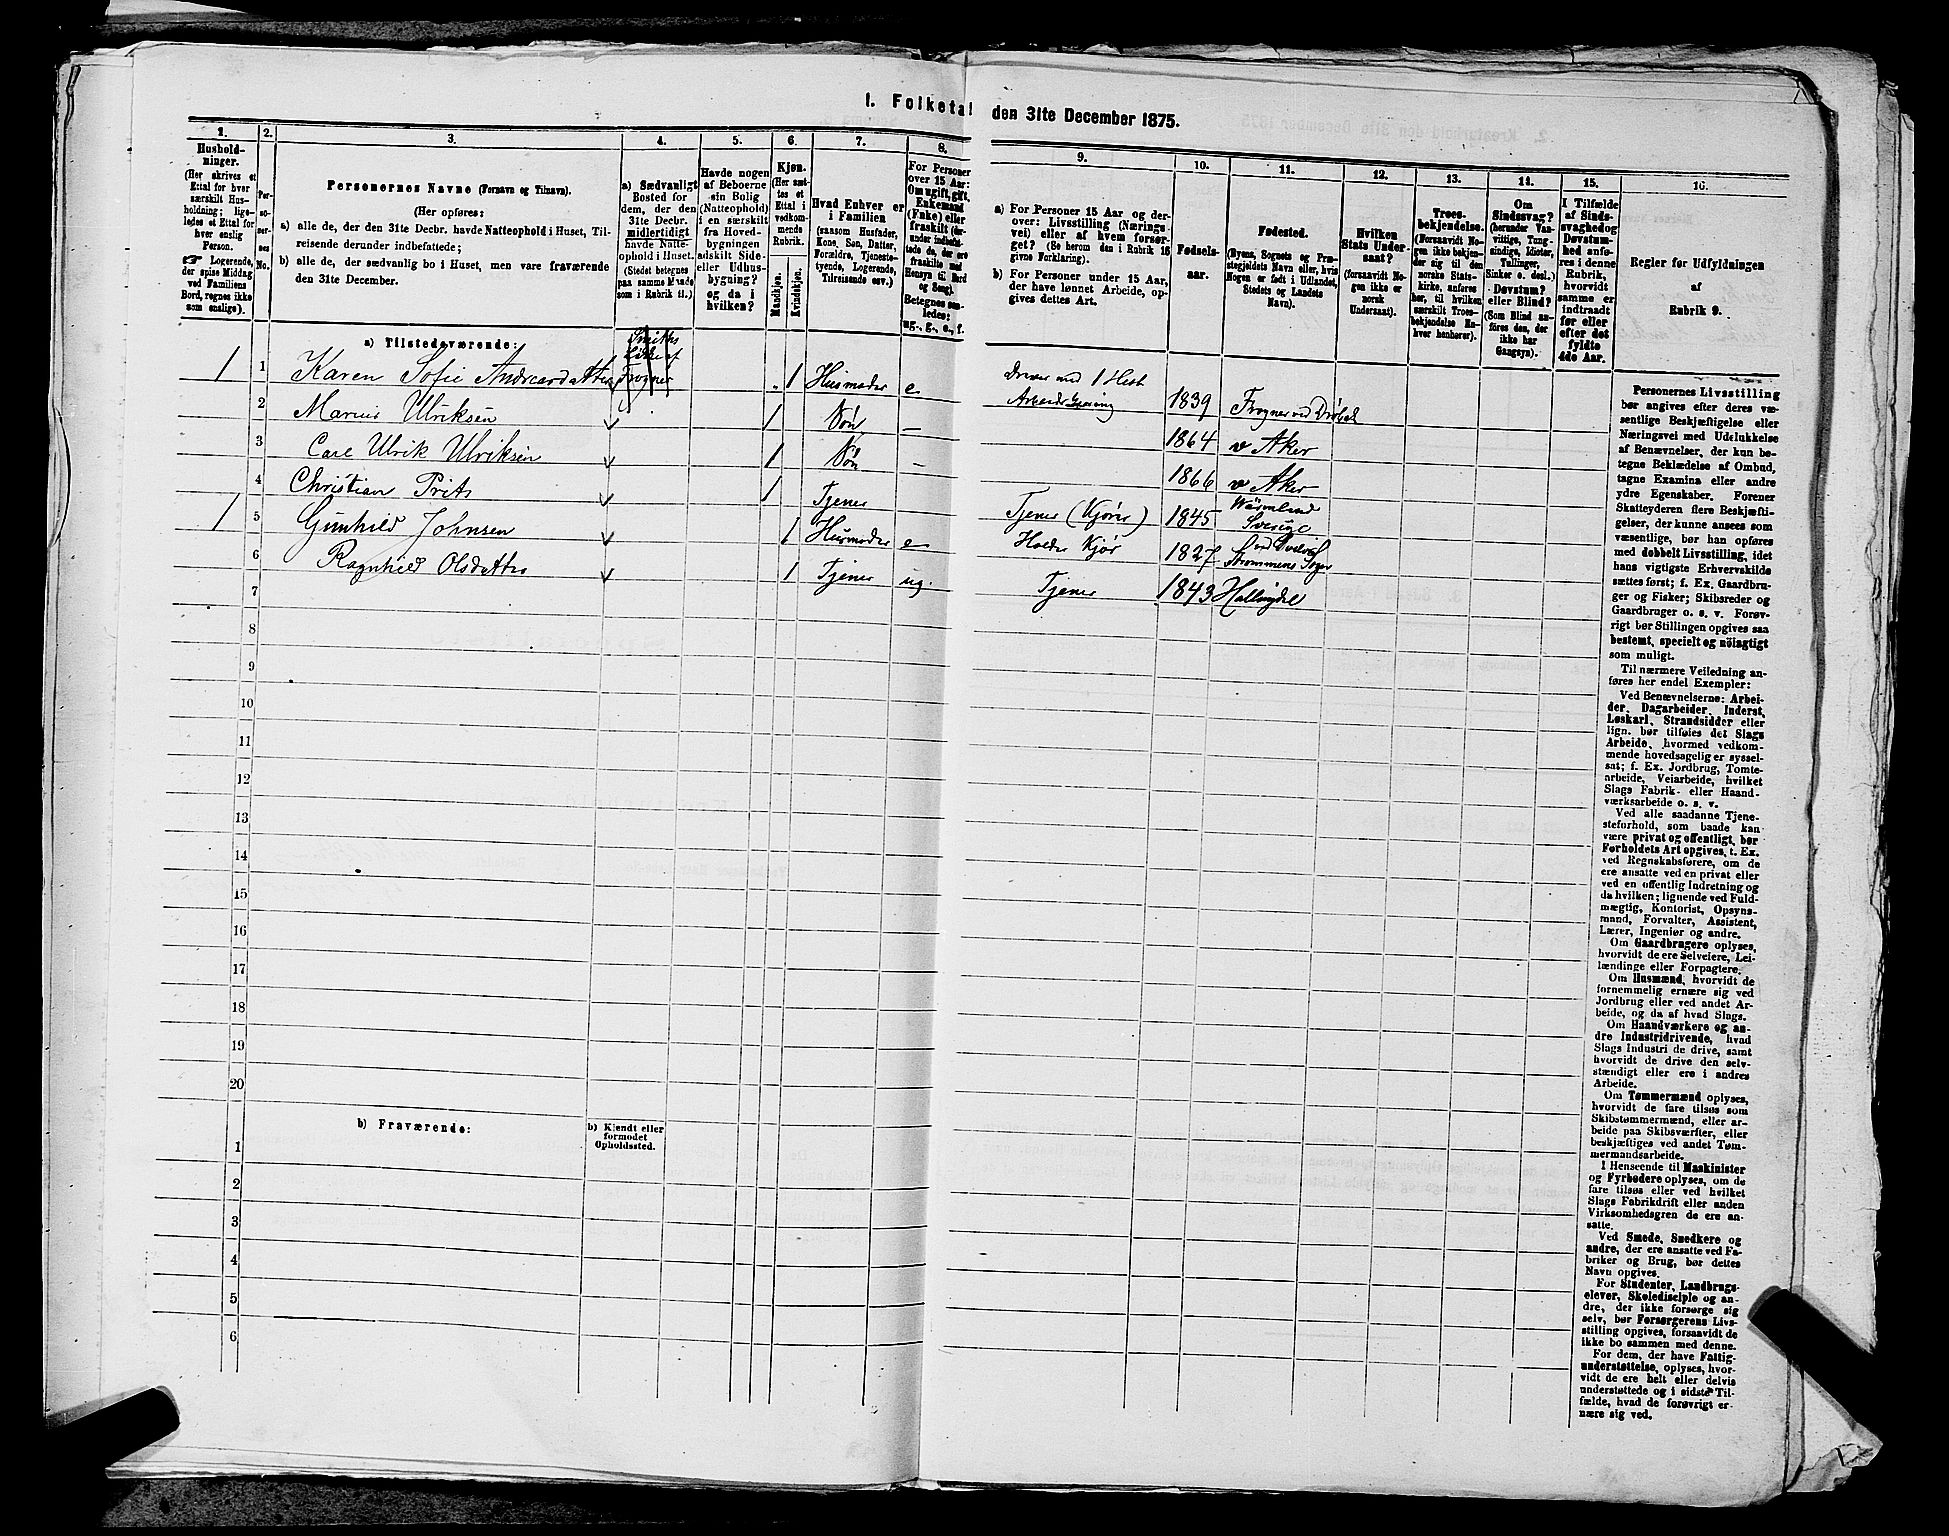 1. Folketal den 31te December 1875.
1. 2. 3. 4. 5. 6. 7. 8. 9. 10. 11. 12. 13. 14. 15. 16.
Husholdninger.
(Her skrives et
Ettal for hver
særskilt Husholdning;
ligeledes et Ettal for
hver enslig
Person.
☞ Logerende,
der spise Middag
ved Familiens
Bord, regnes ikke
som enslige).
Personernes No.
Personernes Navne (Fornavn og Tilnavn).
(Her opføres:
a) alle de, der den 31te Decbr. havde Natteophold i Huset, Tilreisende derunder indbefattede;
b) alle de, der sædvanlig bo i Huset, men vare fraværende
den 31te December.
a) Sædvanligt
Bosted for
dem, der den
31te Decbr.
midlertidigt
havde Natteophold i Huset.
(Stedet betegnes
paa samme Maade
som i Rubrik 11.)
Havde nogen
af Beboerne
sin Bolig
(Natteophold)
i en særskilt
fra Hovedbygningen
adskilt Side-
eller Udhusbygning?
og da i
hvilken?
Kjøn.
(Her sættes et
Ettal i
vedkommende
Rubrik.
Mandkjøn.
Kvindekjøn.
Hvad Enhver er
i Familien
(saasom Husfader,
Kone, Søn, Datter,
Forældre, Tjenestetyende, Logerende,
Tilreisende osv.)
For Personer
over 15 Aar:
Om ugift, gift,
Enkemand
(Enke) eller
fraskilt (derunder indbefattede de, der ere
fraskilte med
Hensyn til Bord
og Seng).
Betegnes saaledes:
ug., g., e., f.
a) For Personer 15 Aar og derover: Livsstilling (Næringsvei) eller af hvem forsørget? (Se herom den i Rubrik 16
givne Forklaring).
b) For Personer under 15 Aar,
der have lønnet Arbeide, opgives dettes Art.
Fødselsaar.
Fødested.
(Byens, Sognets og Præstegjeldets Navn eller, hvis
Nogen er født i Udlandet,
Stedets og Landets
Navn).
Hvilken
Stats Undersaat?
(forsaavidt Nogen ikke er
norsk
Undersaat).
Troesbekjendelse.
(Forsaavidt Nogen ikke bekjender sig til den
norske Statskirke, anføres
her, til hvilken
særskilt Troesbekjendelse Enhver henhører).
Om
Sindssvag?
(herunder Vanvittige, Tungsindige, Idioter,
Tullinger,
Sinker o. desl.)
Døvstum?
eller Blind?
(Som Blind anføres den, der
ikke har
Gangsyn).
I Tilfælde
af Sindssvaghed og
Døvstumhed anføres i denne
Rubrik,
hvorvidt
samme er
indtraadt
før eller
efter det
fyldte
4de Aar.
Regler for Udfyldningen
af
Rubrik 9.
a) Tilstedeværende:
1 1 Karen Sofie Andreasdatter Smiths Løkke af Frogner 1 Husmoder e Driver med 1 Hest Arbeidskjøring 1839 Frogner ved Drøbak
2 Marius Ulriksen 1 Søn – 1864 v Aker
3 Carl Ulrik Ulriksen 1 Søn – 1866 v Aker
4 Christian Prits 1 Tjener Tjener (Kjører) 1845 Wärmland Sverige
1 5 Gunhild Johnsen 1 Husmoder e Holder Kjør 1827 Strømmens Sogn
6 Ragnhild Olsdatter 1 Tjener ug. Tjener 1843 Hallingdal
7
8
9
10
11
12
13
14
15
16
17
18
19
20
b) Fraværende:
b) Kjendt eller
formodet
Opholdssted.
1
2
3
4
5
6
Personernes Livsstilling
bør angives efter deres væsentlige Beskjæftigelse eller
Næringsvei med Udelukkelse
af Benævnelser, der kun betegne Beklædelse af Ombud,
tagne Examina eller andre
ydre Egenskaber. Forener
Skatteyderen flere Beskjæftigelser, der kunne ansees som
væsentlige, bør han opføres
med dobbelt Livsstilling, idet
hans vigtigste Erhvervskilde
sættes først; f. Ex. Gaardbruger og Fisker; Skibsreder og
Gaardbruger o. s. v. Forøvrigt bør Stillingen opgives saa
bestemt, specielt og nöiagtigt
som muligt.
Til nærmere Veiledning anføres her endel Exempler:
Ved Benævnelserne: Arbeider, Dagarbeider, Inderst,
Løskarl, Strandsidder eller
lign. bør tilføies det Slags
Arbeide, hvormed vedkommende hovedsagelig er sysselsat; f. Ex. Jordbrug, Tomtearbeide, Veiarbeide, hvilket
Slags Fabrik- eller Haandværksarbeide o. s. v.
Ved alle saadanne Tjenesteforhold, som baade kan
være privat og offentligt, bør
Forholdets Art opgives, t. Ex.
ved Regnskabsførere, om de
ere ansatte ved en privat eller
ved en offentlig Indretning og
da hvilken; lignende ved Fuldmægtig, Kontorist, Opsynsmand, Forvalter, Assistent,
Lærer, Ingeniør og andre.
Om Gaardbrugere oplyses,
hvorvidt de ere Selveiere, Leilændinge eller Forpagtere.
Om Husmænd, hvorvidt de
fornemmelig ernære sig ved
Jordbrug eller ved andet Arbeide, og da af hvad Slags.
Om Haandværkere og andre Industridrivende, hvad
Slags Industri de drive, samt
hvorvidt de drive den selvstændigt eller ere i andres
Arbeide.
Om Tømmermænd oplyses,
hvorvidt de fare tilsøs som
Skibstømmermænd, eller arbeide paa Skibsværfter, eller
beskjæftiges ved andet Tømmermandsarbeide.
I Henseende til Maskinister
og Fyrbødere oplyses, om de
fare tilsøs eller ved hvilket
Slags Fabrikdrift eller anden
Virksomhedsgren de ere ansatte.
Ved Smede, Snedkere og
andre, der ere ansatte ved Fabriker og Brug, bør dettes
Navn opgives.
For Studenter, Landbrugselever, Skoledisciple og andre, der ikke forsørge sig
selv, bør Forsørgerens Livsstilling opgives, forsaavidt de
ikke bo sammen med denne.
For dem, der have Fattigunderstøttelse, oplyses, hvorvidt de ere helt eller delvis
understøttede og i sidste Tilfælde, hvad de forøvrigt ernære sig ved.